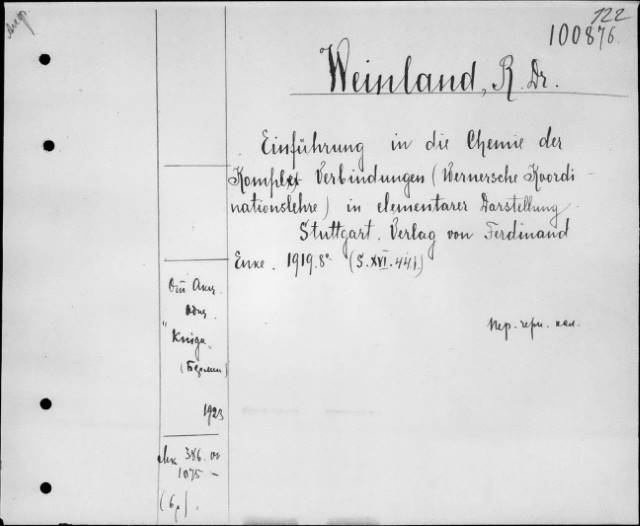 122
100876.
Weinland, R. Dr.
Einführung in die Chemie der
Komplex Verbindungen (Wernersche Koordi-
nationslehre) in elementarer Darstellung.
Stuttgart. Verlag von Ferdinand
Enke. 1919. 8°. (S. XVI. 441.)
"Kniga"
(Берлин)
1923
386.00
1075 -